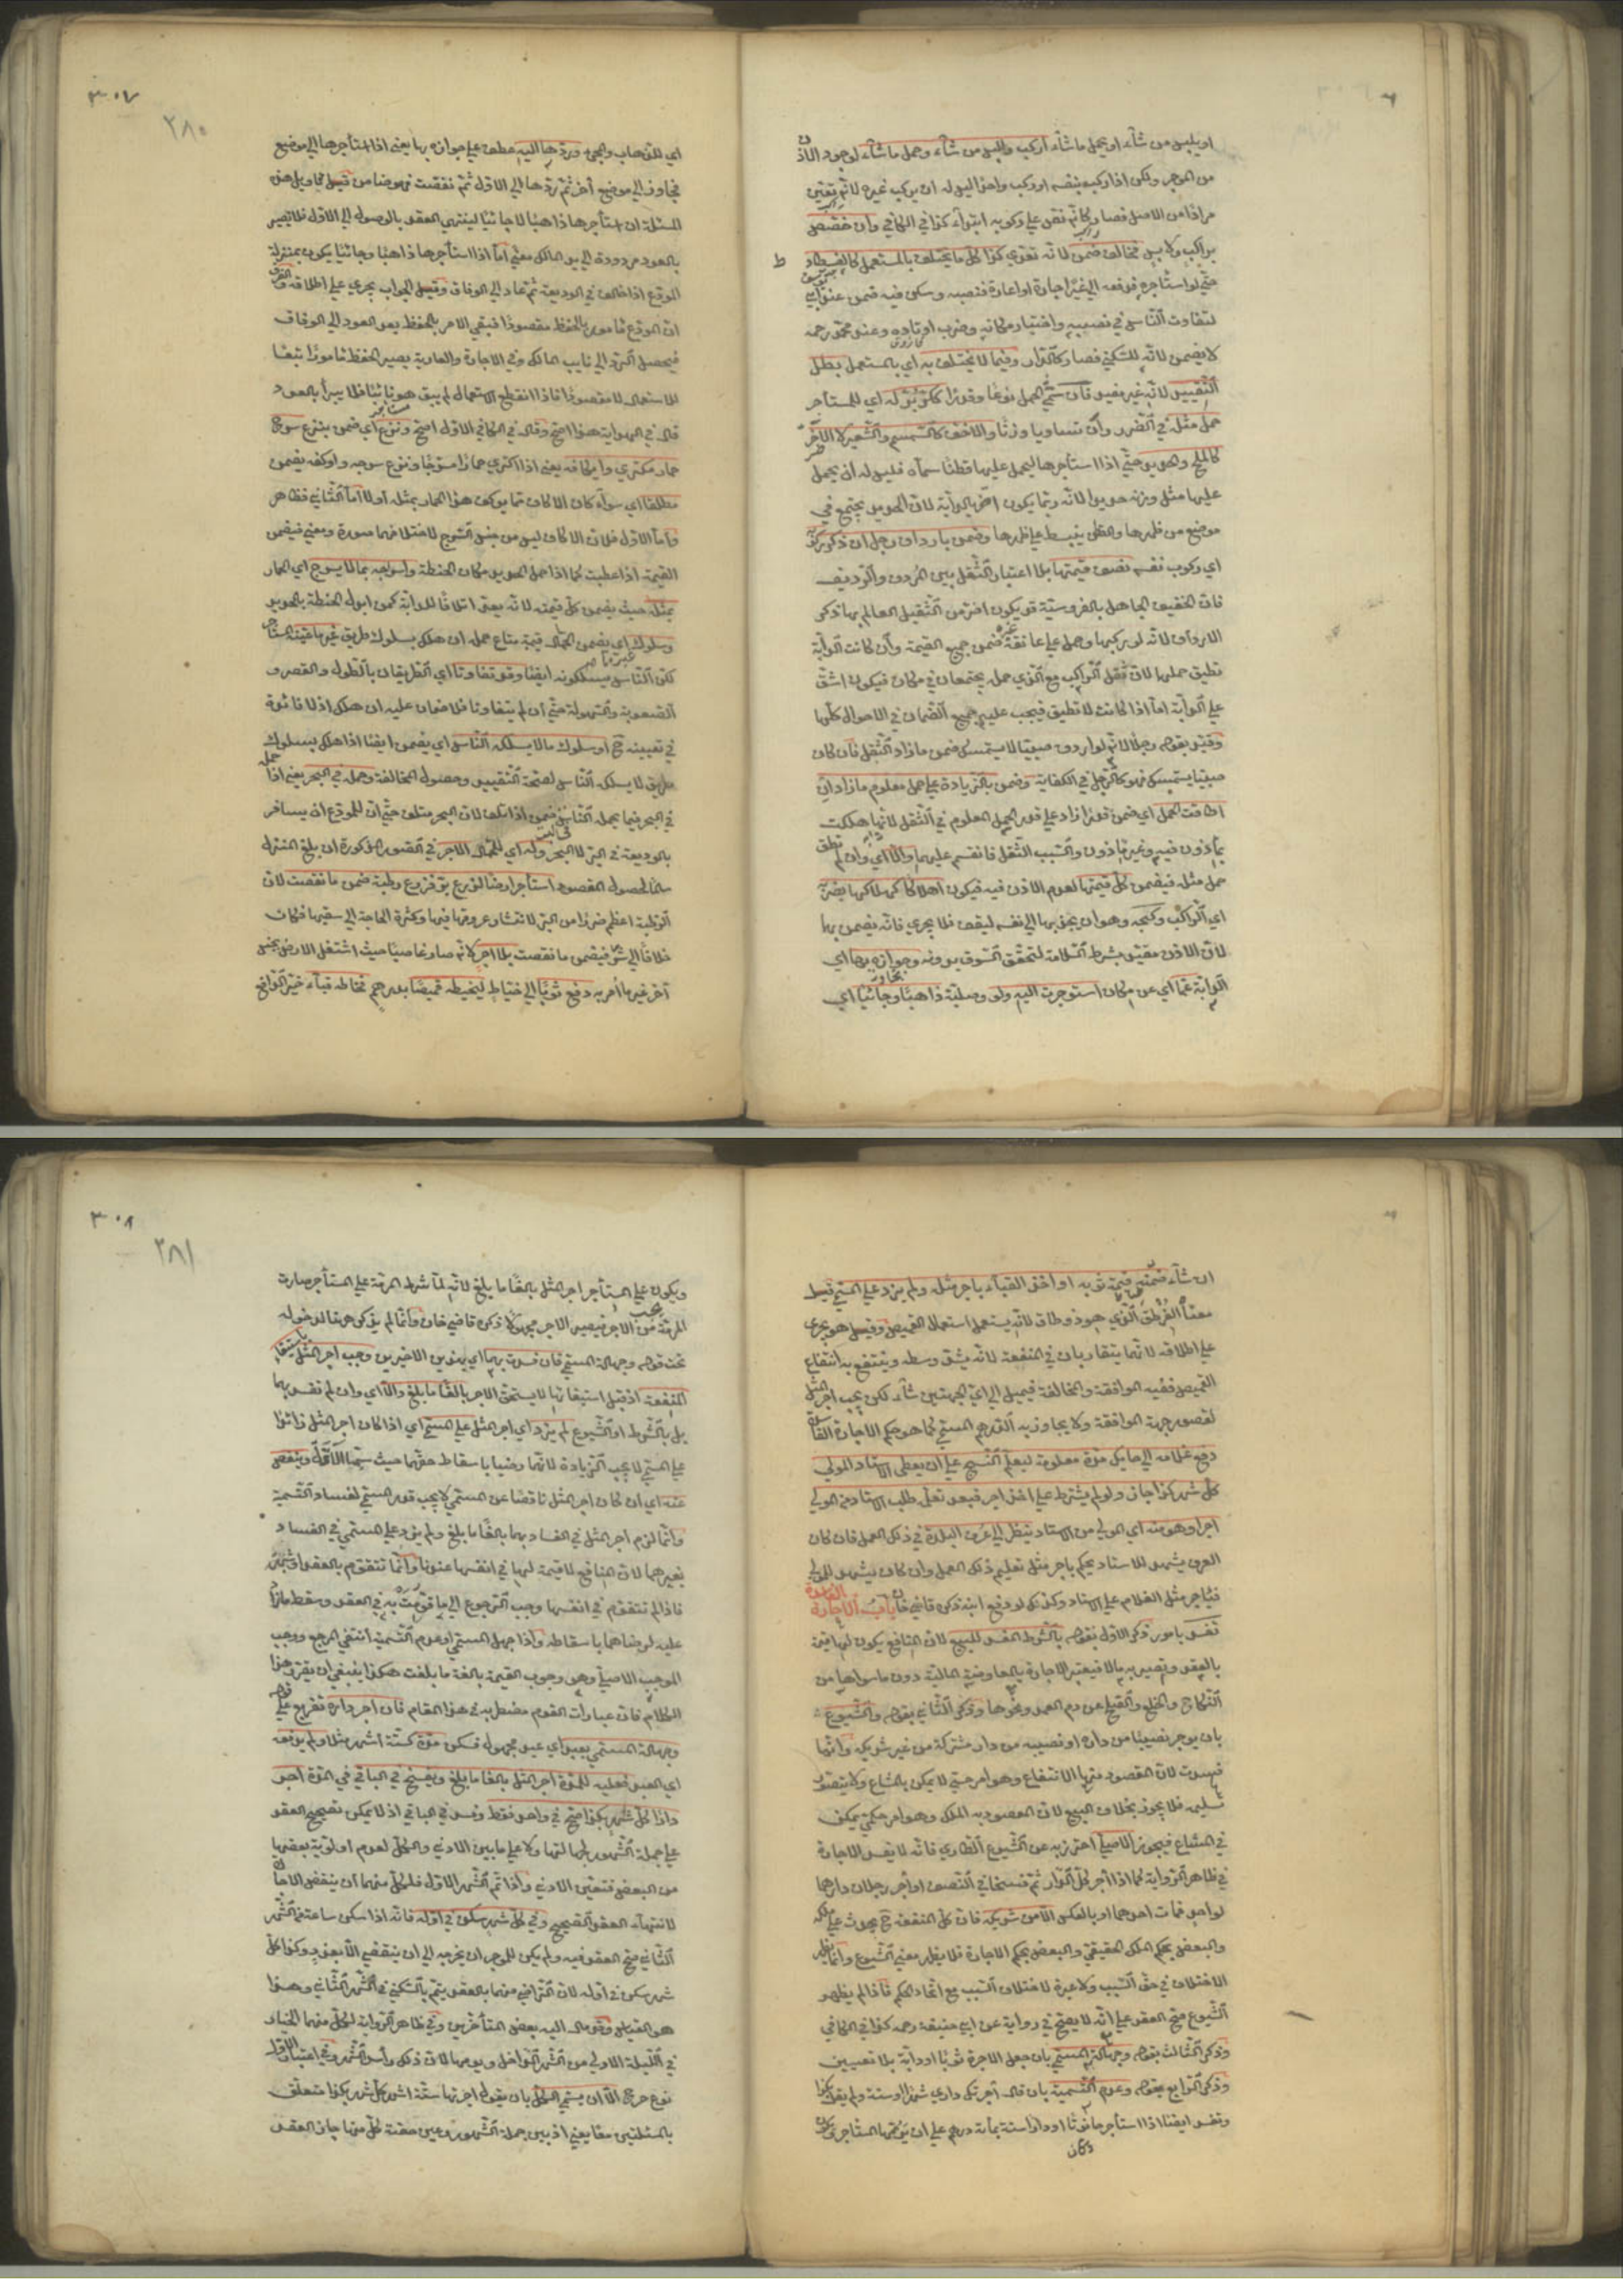 او يلبس من شاء او يحمل ما شاء اركب والبس من شاء وحمل ما شاء لوجود الاذن
من الموجر ولكن اذا ركب بنفسه او ركب واحدا ليس له ان يركب غيره لانه تعين
مرادا من الاصل فصار كانه نص على ركوبه ابتداء كذا في الكافي وان خصص
براكب ولابس فخالف ضمن لانه تعدي كذا كل ما يختلف بالمستعمل كالفسطاط
حتى لو استأجره فدفعه الى غيره اجارة او اعارة فنصبه وسكن فيه ضمن عند ابي
لتفاوت الناس في نصبه واختيار مكانه وضرب اوتاده وعند محمد رحمه
لا يضمن لانه للسكنى فصار كالدار وفيما لا يختلف به اي بالمستعمل بطل
التقييد لانه غير مفيد فان سمي الحمل نوعا وقدرا ككر بر له اي للمستأجر
حمل مثله في الضرر وان تساويا وزنا والاخف كالسمسم والشعير لا الاضر
كالملح والحديد حتى اذا استأجرها ليحمل عليها قطنا سماه فليس له ان يحمل
عليها مثل وزنه حديدا لانه ربما يكون اضر بالدابة لان الحديد يجتمع في
موضع من ظهرها والقطن ينبسط على ظهرها وضمن بارداف رجل ان ذكر ركوبه
اي ركوب نفسه نصف قيمتها بلا اعتبار الثقل بين المردف والرديف
فان الخفيف الجاهل بالفروسية قد يكون اضر من الثقيل العالم بها ذكر
الارداف لانه لو ركبها وحمل على عاتقه غيره ضمن جميع القيمة وان كانت الدابة
تطيق حملها لان ثقل الراكب مع الذي حمله يجتمعان في مكان فيكون اشق
على الدابة اما اذا كانت لا تطيق فيجب عليه جميع الضمان في الاحوال كلها
وقيد بقوله رجلا لانه لو اردف صبيا لا يستمسك ضمن ما زاد الثقل فان كان
صبيا يستمسك فهو كالرجل في الكفاية وضمن بالزيادة على حمل معلوم ما زاد ان
اطاقت الحمل اي ضمن قدرا زاد على قدر الحمل المعلوم في الثقل لانها هلكت
بمأذون فيه وغير مأذون والسبب الثقل فانقسم عليهما والا اي وان لم تطق
حمل مثله فيضمن كل قيمتها لعدم الاذن فيه فيكون اهلاكا كهلاكها بضربه
اي الراكب وكبحه وهو ان يجذبها الى نفسه ليقف فلا يجري فانه يضمن بها
لان الاذن مقيد بشرط السلامة لتحقق السوق بدونه وجوازه بها اي
الدابة عما اي عن مكان استوجرت اليه ولو وصلية ذاهبا وجائيا اي
٣٠٧
٢٨٠
اي للذهاب والمجئ وردها اليه عطف على جوازه بها يعني اذا استأجرها الى موضع
فجاوز الى موضع آخر ثم ردها الى الاول ثم نفقت فهو ضامن قيل تأويل هذه
المسئلة ان استأجرها ذاهبا لا جائيا لينتهي العقد بالوصول الى الاول فلا يصير
بالعود مردودة الى يد المالك معنى اما اذا استأجرها ذاهبا وجائيا يكون بمنزلة
المودع اذا خالف في الوديعة ثم عاد الى الوفاق وقيل الجواب يجري على اطلاقه والفرق
ان المودع مأمور بالحفظ مقصودا فبقي الامر بالحفظ بعد العود الى الوفاق
فيحصل الرد الى نايب المالك وفي الاجارة والعارية يصير الحفظ مأمورا تبعا
للاستعمال لا مقصودا فاذا انقطع الاستعمال لم يبق هو نائبا فلا يبرأ بالعود
قال في الهداية هذا اصح وقال في الكافي الاول اصح ونزع اي ضمن بنزع سرج
حمار مكتري وايكافه يعني اذا اكتري حمارا مسرجا ونزع سرجه واوكفه يضمن
مطلقا اي سواء كان الاكاف مما يوكف هذا الحمار بمثله اولا اما الثاني فظاهر
واما الاول فلان الاكاف ليس من جنس السرج لاختلافهما صورة ومعنى فيضمن
القيمة اذا عطبت كما اذا حمل الحديد مكان الحنطة واسراجه بما لا يسرج اي الحمار
بمثله حيث يضمن كل قيمته لانه يعد اتلافا للدابة كمن ابدل الحنطة بالحديد
وسلوك اي يضمن الحمال قيمة متاع حمله ان هلك بسلوك طريق غير ما عينه المستأجر
لكن الناس يسلكونه ايضا وقد تفاوتا اي الطريقان بالطول والقصر و
الصعوبة والسهولة حتى ان لم يتفاوتا فلا ضمان عليه ان هلك اذ لا فائدة
في تعيينه ح او سلوك ما لا يسلكه الناس اي يضمن ايضا اذا هلك بسلوك
طريق لا يسلكه الناس لصحة التقييد وحصول المخالفة وحمله في البحر يعني اذا حمل
في البحر فيما يحمله الناس في البر ضمن اذا تلف لان البحر متلف حتى ان للمودع ان يسافر
بالوديعة في البر لا البحر وله اي للحمال الاجر في الصور المذكورة ان بلغ المنزل
سالما لحصول المقصود استأجر ارضا لزرع بر فزرع رطبة ضمن ما نقصت لان
الرطبة اعظم ضررا من البر لانتشار عروقها فيها وكثرة الحاجة الى سقيها فكان
خلافا الى شر فيضمن ما نقصت بلا اجر لانه صار غاصبا حيث اشتغل الارض بجنس
آخر غير ما امر به دفع ثوبا الى خياط ليخيطه قميصا بدرهم فخاطه قباء خير الدافع
ان شاء ضمنه قيمة ثوبه او اخذ القباء باجر مثله ولم يزد على المسمى قيل
معناه القرطق الذي هو ذو طاق لانه يستعمل استعمال القميص وقيل هو يجري
على اطلاقه لانهما يتقاربان في المنفعة لانه يشق وسطه وينتفع به انتفاع
القميص ففيه الموافقة والمخالفة فيميل الى اي الجهتين شاء لكن يجب اجر المثل
لقصور جهة الموافقة ولا يجاوز به الدرهم المسمى كما هو حكم الاجارة الفاسدة
دفع غلامه الى حايك مدة معلومة ليعلم النسج على ان يعطي الاستاد المولى
كل شهر كذا جاز ولو لم يشترط على اخذ اجر فبعد تعلمه طلب الاستاد من المولى
اجرا وهو منه اي المولى من الاستاد ينظر الى عرف البلدة في ذلك العمل فان كان
العرف يشهد للاستاد يحكم باجر مثل تعليم ذلك العمل وان كان يشهد للمولى
فباجر مثل الغلام على الاستاد وكذلك لو دفع ابنه ذكره قاضي خان باب الاجارة الفاسدة
تفسد بامور ذكر الاول بقوله بالشرط المفسد للبيع لان المنافع يكون لها قيمة
بالعقد وتصير به مالا فيعتبر الاجارة بالمعاوضة المالية دون ما سواها من
النكاح والخلع والصلح عن دم العمد ونحوها وذكر الثاني بقوله والشيوع
بان يوجر نصيبا من داره او نصيبه من دار مشتركة من غير شريكه وانما
فسدت لان المقصود منها الانتفاع وهو امر حسي لا يمكن بالمشاع ولا يتصور
تسليمه فلا يجوز بخلاف البيع لان المقصود به الملك وهو امر حكمي يمكن
في المشاع فيجوز الاصلي احترز به عن الشيوع الطاري فانه لا يفسد الاجارة
في ظاهر الرواية كما اذا آجر كل الدار ثم فسخا في النصف او آجر رجلان دارهما
لواحد فمات احدهما او بالعكس الا من شريكه فان كل المنفعة ح يحدث على ملكه
والبعض بحكم الملك الحقيقي والبعض بحكم الاجارة فلا يظهر معنى الشيوع وانما يظهر
الاختلاف في حق السبب ولا عبرة لاختلاف السبب مع اتحاد الحكم فاذا لم يظهر
الشيوع صح العقد على انه لا يصح في رواية عن ابي حنيفة رحمه كذا في الكافي
وذكر الثالث بقوله وجهالة المسمى بان جعل الاجرة ثوبا او دابة بلا تعيين
وذكر الرابع بقوله وعدم التسمية بان قال آجرتك داري شهرا او سنة ولم يقل بكذا
وتفسد ايضا اذا استأجر حانوتا او دارا سنة بمائة درهم على ان يرمها المستأجر
٣٠٨
٢٨١
ويكون على المستأجر اجر المثل بالغا ما بلغ لانه لما شرط المرمة على المستأجر صارت
المرمة من الاجر فيصير الاجر مجهولا ذكره قاضي خان وانما لم يذكر هو هنا لدخوله
تحت قوله وجهالة المسمى فان فسدت بهما اي بهذين الاخيرين وجب اجر المثل باستيفاء
المنفعة اذ قبل استيفائها لا يستحق الاجر بالغا ما بلغ والا اي وان لم تفسد بهما
بل بالشرط او الشيوع لم يزد اي اجر المثل على المسمى اي اذا كان اجر المثل زائدا
على المسمى لا يجب الزيادة لانهما رضيا باسقاط حقهما حيث سميا الاقل وينقص
عنه اي ان كان اجر المثل ناقصا عن المسمى لا يجب قدر المسمى لفساد التسمية
وانما لزم اجر المثل في الفساد بهما بالغا ما بلغ ولم يزد على المسمى في الفساد
بغيرهما لان المنافع لا قيمة لها في انفسها عندنا وانما تتقوم بالعقد او شبهته
فاذا لم تتقوم في انفسها وجب الرجوع الى ما قومت به في العقد وسقط ما زاد
عليه لرضاهما باسقاطه واذا جهل المسمى او عدم التسمية انتفى المرجع ووجب
الموجب الاصلي وهو وجوب القيمة بالغة ما بلغت هكذا ينبغي ان يقرر هذا
الكلام فان عبارات القوم مضطربة في هذا المقام فان آجر داره تفريع على قوله
وجهالة المسمى بعبد اي عبد مجهول فسكن مدة كستة اشهر مثلا ولم يدفعه
اي العبد فعليه للمدة اجر المثل بالغا ما بلغ ويفسخ في الباقي في المدة آجر
دارا كل شهر بكذا صح في واحد فقط وفسد في الباقي اذ لا يمكن تصحيح العقد
على جملة الشهور لجهالتها ولا على ما بين الادنى والكل لعدم اولوية بعضها
من البعض فتعين الادنى واذا تم الشهر الاول فلكل منهما ان ينقض الاجارة
لانتهاء العقد الصحيح وفي كل شهر سكن في اوله فانه اذا سكن ساعة في الشهر
الثاني صح العقد فيه ولم يكن للموجر ان يخرجه الى ان ينقضي الا بعذر وكذا كل
شهر سكن في اوله لان التراضي منهما بالعقد يتم بالسكنى في الشهر الثاني وهذا
هو القياس وقد مال اليه بعض المتأخرين وفي ظاهر الرواية لكل منهما الخيار
في الليلة الاولى من الشهر الداخل ويومها لان ذلك رأس الشهر وفي اعتبار الاول
نوع حرج الا ان يسمي الكل بان يقول آجرتها ستة اشهر كل شهر بكذا متعلق
بالمسئلتين معا يعني اذا بين جملة الشهور وعين حصة كل منها جاز العقد